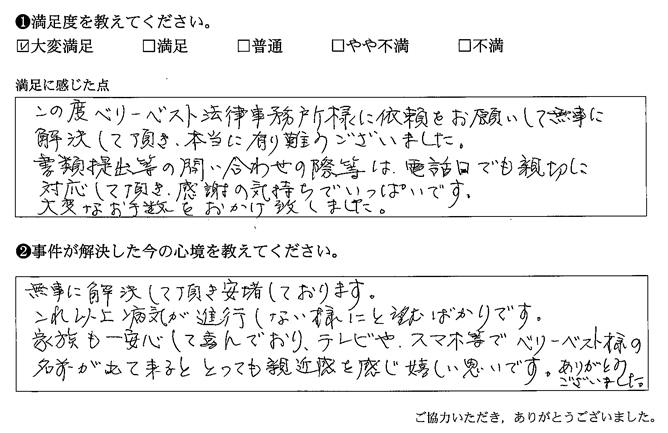 ❶満足度を教えてください。
☑大変満足 □満足 □普通 □やや不満 □不満
満足に感じた点
この度ベリーベスト法律事務所様に依頼をお願いして無事に
解決して頂き、本当に有り難うございました。
書類提出等の問い合わせの際等は、電話口でも親切に
対応して頂き、感謝の気持ちでいっぱいです。
大変なお手数をおかけ致しました。
❷事件が解決した今の心境を教えてください。
無事に解決して頂き安堵しております。
これ以上病気が進行しない様にと望むばかりです。
家族も一安心して喜んでおり、テレビや、スマホ等でベリーベスト様の
名前が出て来ると とっても親近感を感じ嬉しい思いです。ありがとう
ございました。
ご協力いただき，ありがとうございました。